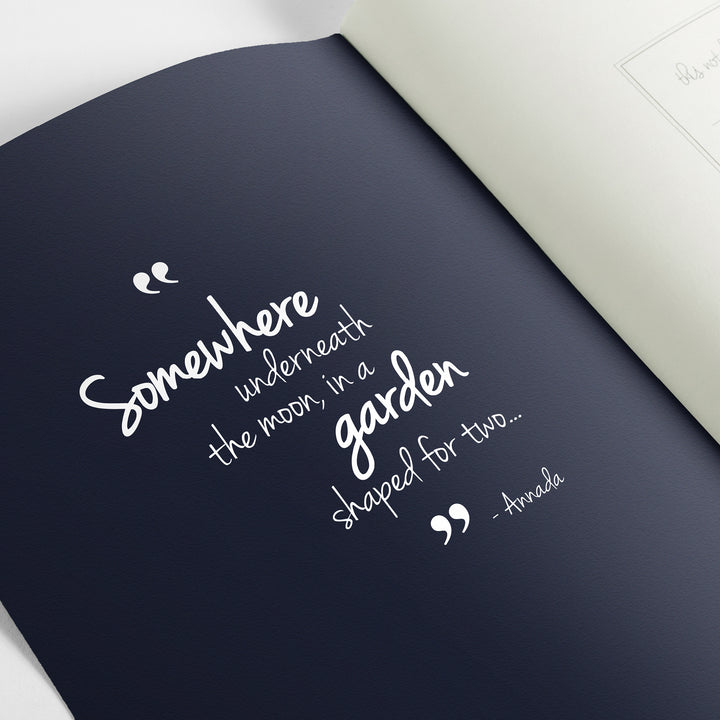 “
Somewhere
underneath
the moon, in a
garden
shaped for two...
”
- Annada
this